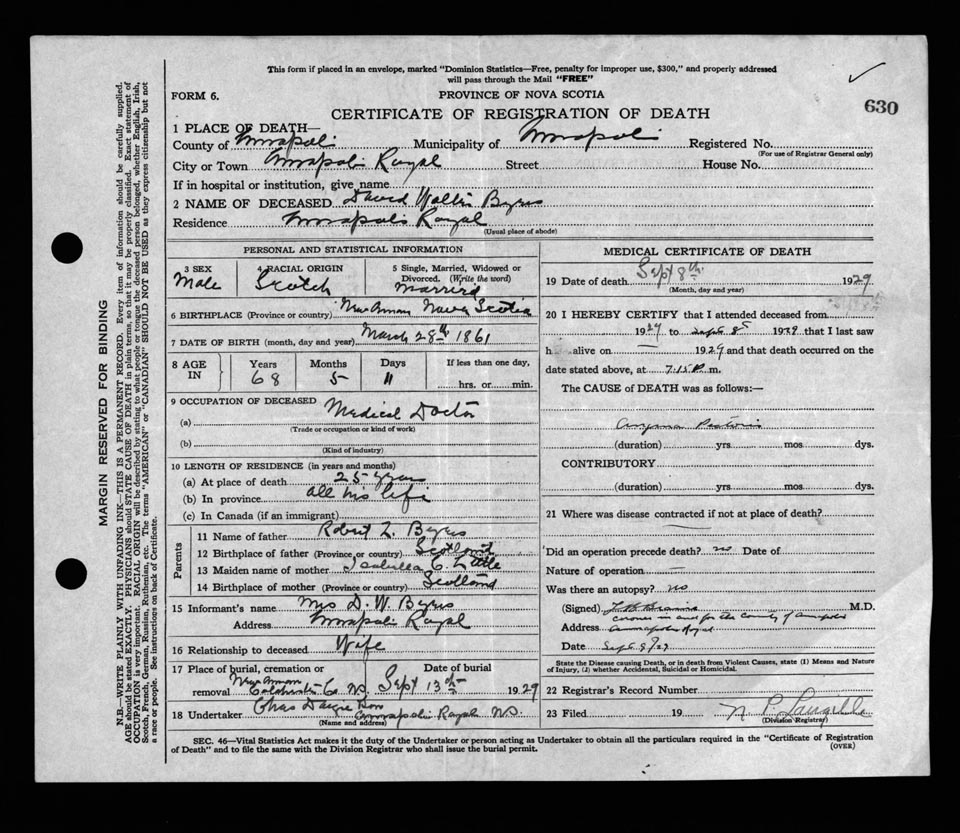 This form if placed in an envelope, marked "Dominion Statistics—Free, penalty for improper use, $300," and properly addressed
will pass through the Mail "FREE"
FORM 6.
PROVINCE OF NOVA SCOTIA
630
CERTIFICATE OF REGISTRATION OF DEATH
1 PLACE OF DEATH—
County of Annapolis Municipality of Annapolis Registered No.
(For use of Registrar General only)
City or Town Annapolis Royal Street House No.
If in hospital or institution, give name
2 NAME OF DECEASED David Byers
Residence Annapolis Royal
(Usual place of abode)
PERSONAL AND STATISTICAL INFORMATION
3 SEX 4 RACIAL ORIGIN 5 Single, Married, Widowed or Divorced. (Write the word)
Male Scotch Married
6 BIRTHPLACE (Province or country) New Annan Nova Scotia
7 DATE OF BIRTH (month, day and year) March 28th 1861
8 AGE IN Years Months Days If less than one day,
68 5 11 hrs. or min.
9 OCCUPATION OF DECEASED
(a) Medical Doctor
(Trade or occupation or kind of work)
(b)
(Kind of industry)
10 LENGTH OF RESIDENCE (in years and months)
(a) At place of death 25 years
(b) In province all his life
(c) In Canada (if an immigrant)
Parents
11 Name of father Robert L. Byers
12 Birthplace of father (Province or country) Scotland
13 Maiden name of mother Isabella C. Little
14 Birthplace of mother (Province or country) Scotland
15 Informant's name Mrs D. W. Byers
Address Annapolis Royal
16 Relationship to deceased Wife
17 Place of burial, cremation or removal New Annan Colchester Co. N.S. Date of burial Sept 13th 1929
18 Undertaker Chas Annapolis Royal N.S.
(Name and address)
MEDICAL CERTIFICATE OF DEATH
19 Date of death Sept 8th 1929
(Month, day and year)
20 I HEREBY CERTIFY that I attended deceased from
1929 to Sept 8 1929 that I last saw
h alive on — 1929 and that death occurred on the
date stated above, at 7:15 P. m.
The CAUSE of DEATH was as follows:—
Angina Pectoris
(duration) yrs. mos. dys.
CONTRIBUTORY
(duration) yrs. mos. dys.
21 Where was disease contracted if not at place of death?
Did an operation precede death? no Date of
Nature of operation —
Was there an autopsy? no
(Signed) M.D.
coroner in and for the County of Annapolis
Address Annapolis Royal
Date Sept 9/29
State the Disease causing Death, or in death from Violent Causes, state (1) Means and Nature
of Injury, (2) whether Accidental, Suicidal or Homicidal.
22 Registrar's Record Number
23 Filed 19
(Division Registrar)
SEC. 46—Vital Statistics Act makes it the duty of the Undertaker or person acting as Undertaker to obtain all the particulars required in the "Certificate of Registration
of Death" and to file the same with the Division Registrar who shall issue the burial permit.
(OVER)
MARGIN RESERVED FOR BINDING
N.B.—WRITE PLAINLY WITH UNFADING INK—THIS IS A PERMANENT RECORD. Every item of information should be carefully supplied.
AGE should be stated EXACTLY. PHYSICIANS should STATE CAUSE OF DEATH in plain terms, so that it may be properly classified. Exact statement of
OCCUPATION is very important. RACIAL ORIGIN will be described by stating to what people or tongue the deceased person belonged, whether English, Irish,
Scotch, French, German, Russian, Ruthenian, etc. The terms "AMERICAN" or "CANADIAN" SHOULD NOT BE USED as they express citizenship but not
a race or people. See instructions on back of Certificate.